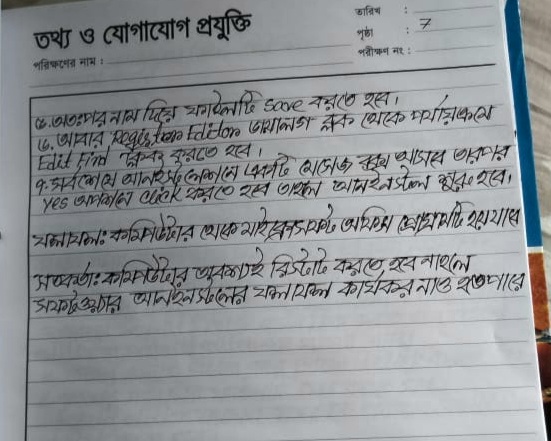 তথ্য ও যোগাযোগ প্রযুক্তি
তারিখ :
পৃষ্ঠা : 7
পরীক্ষণ নং :
পরিক্ষণের নাম :
৫. অতঃপর নাম দিয়ে ফাইলটি save করতে হবে।
৬. আবার Registration Edition ডায়ালগ থেকে পর্যায়ক্রমে
Edit Find ক্লিক করতে হবে।
৭. সর্বশেষে আনইন্সটলেশনে একটি মেসেজ বক্স আসবে তারপর
yes অপশনে click করতে হবে তাহলে আনইনস্টল শুরু হবে।
ফলাফল: কমপিউটার থেকে মাইক্রোসফট অফিস প্রোগ্রামটি
সতর্কতা: কমপিউটার অবশ্যই রিস্টার্ট করতে হবে নাহলে
সফটওয়্যার আনইনস্টলের ফলাফল কার্যকর নাও হতে পারে